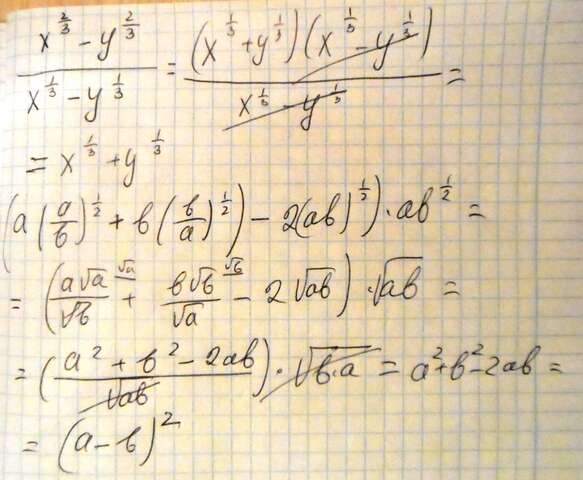 \frac{x^{\frac{2}{3}} - y^{\frac{2}{3}}}{x^{\frac{1}{3}} - y^{\frac{1}{3}}} = \frac{(x^{\frac{1}{3}} + y^{\frac{1}{3}})(x^{\frac{1}{3}} - y^{\frac{1}{3}})}{x^{\frac{1}{3}} - y^{\frac{1}{3}}} =
= x^{\frac{1}{3}} + y^{\frac{1}{3}}
(a(\frac{a}{b})^{\frac{1}{2}} + b(\frac{b}{a})^{\frac{1}{2}}) - 2(ab)^{\frac{1}{2}}) \cdot ab^{\frac{1}{2}} =
= (\frac{a\sqrt{a}}{\sqrt{b}}^{\sqrt{a}} + \frac{b\sqrt{b}}{\sqrt{a}}^{\sqrt{b}} - 2\sqrt{ab}) \cdot \sqrt{ab} =
= (\frac{a^2 + b^2 - 2ab}{\sqrt{ab}}) \cdot \sqrt{b \cdot a} = a^2 + b^2 - 2ab =
= (a - b)^2